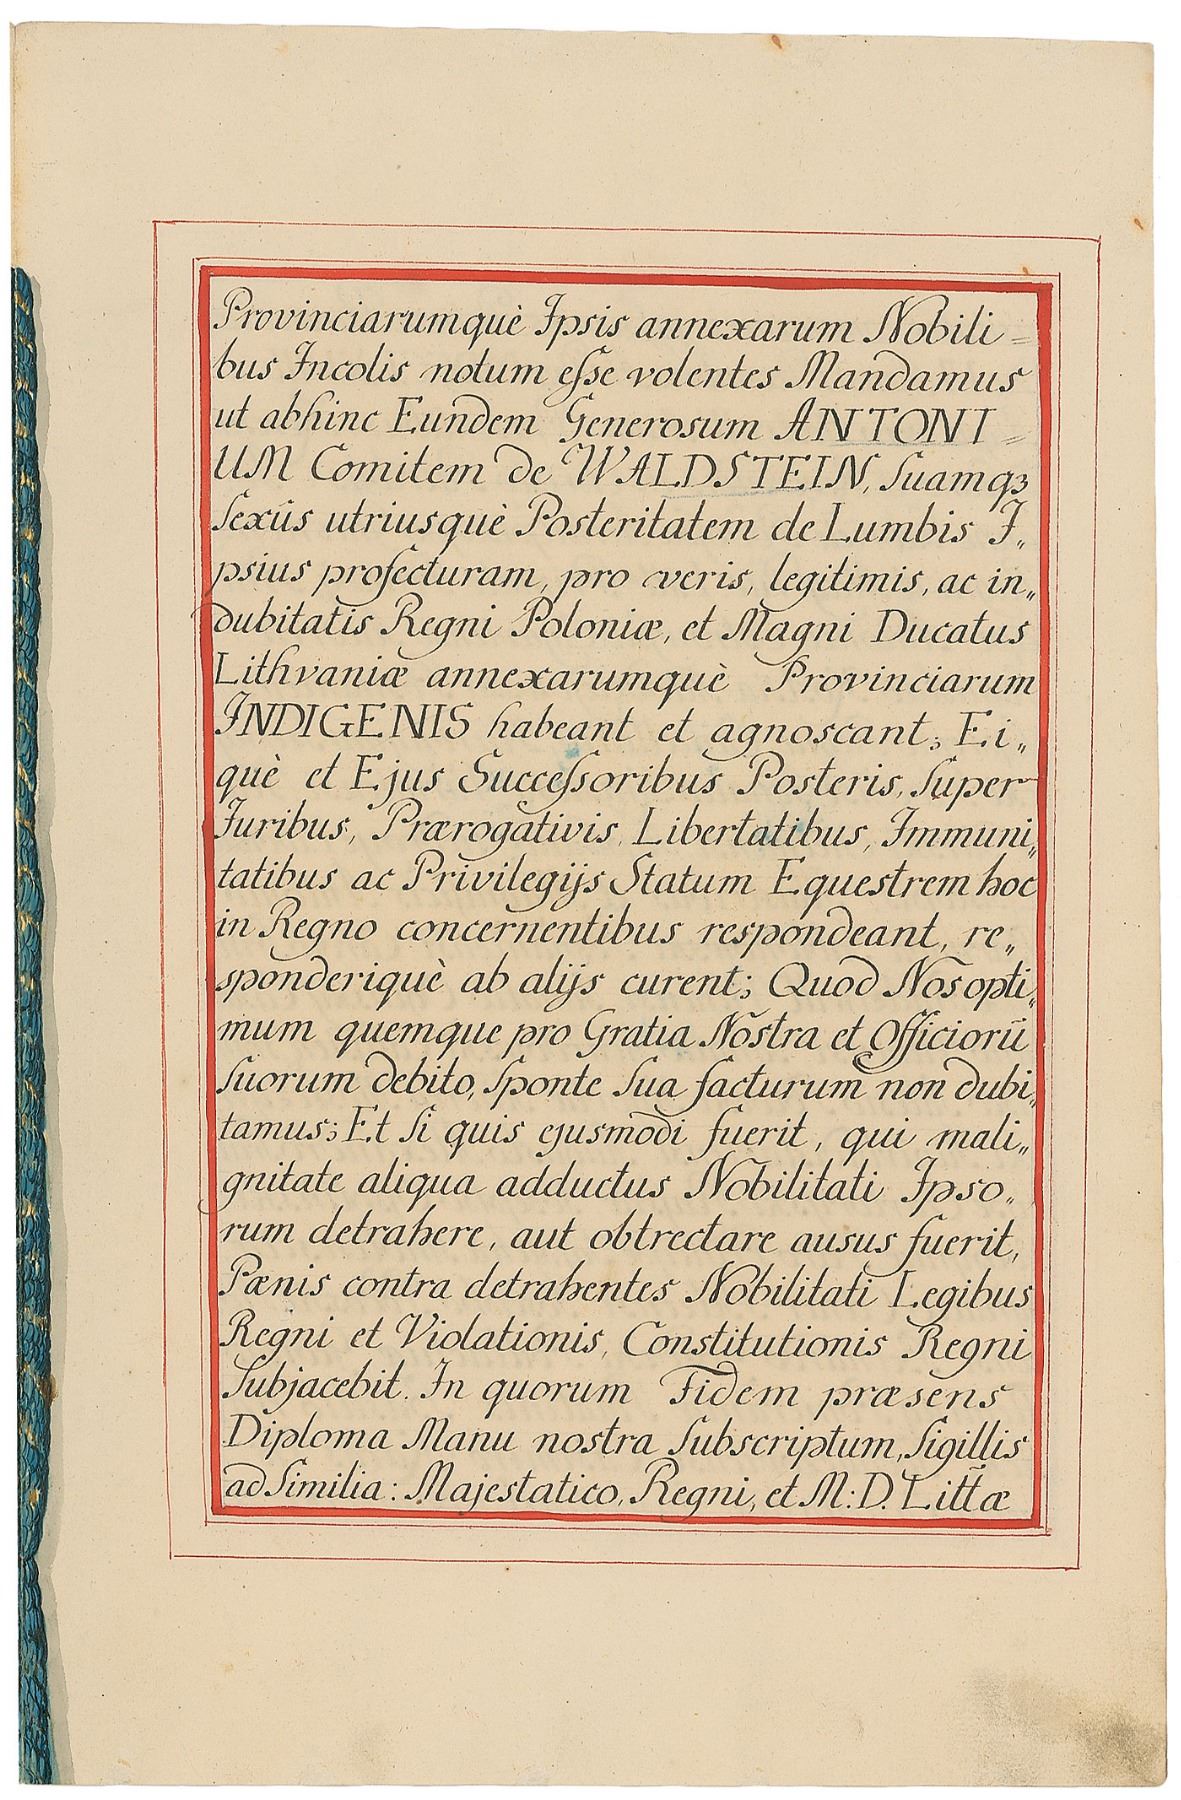 Provinciarumquè Ipsis annexarum Nobili=
bus Incolis notum eſse volentes Mandamus
ut abhinc Eundem Generosum ANTONI=
UM Comitem de WALDSTEIN, Suamqꝫ
Sexûs utriusquè Posteritatem de Lumbis I„
psius profecturam, pro veris, legitimis, ac in„
dubitatis Regni Poloniæ, et Magni Ducatus
Lithvaniæ annexarumquè Provinciarum
INDIGENIS habeant et agnoscant; Ei„
què et Ejus Succeſsoribus Posteris, Super
Juribus, Prærogativis, Libertatibus, Immuni„
tatibus ac Privilegijs Statum Equestrem hoc
in Regno concernentibus respondeant, re„
sponderiquè ab alijs curent; Quod Nos opti„
mum quemque pro Gratia Nostra et Officiorū
Suorum debito, Sponte Sua facturum non dubi„
tamus; Et Si quis ejusmodi fuerit, qui mali„
gnitate aliqua adductus Nobilitati Ipso„
rum detrahere, aut obtrectare ausus fuerit,
Pænis contra detrahentes Nobilitati Legibus
Regni et Violationis, Constitutionis Regni
Subjacebit. In quorum Fidem præsens
Diploma Manu nostra Subscriptum, Sigillis
ad Similia: Majestatico, Regni, et M: D. Litt̄æ